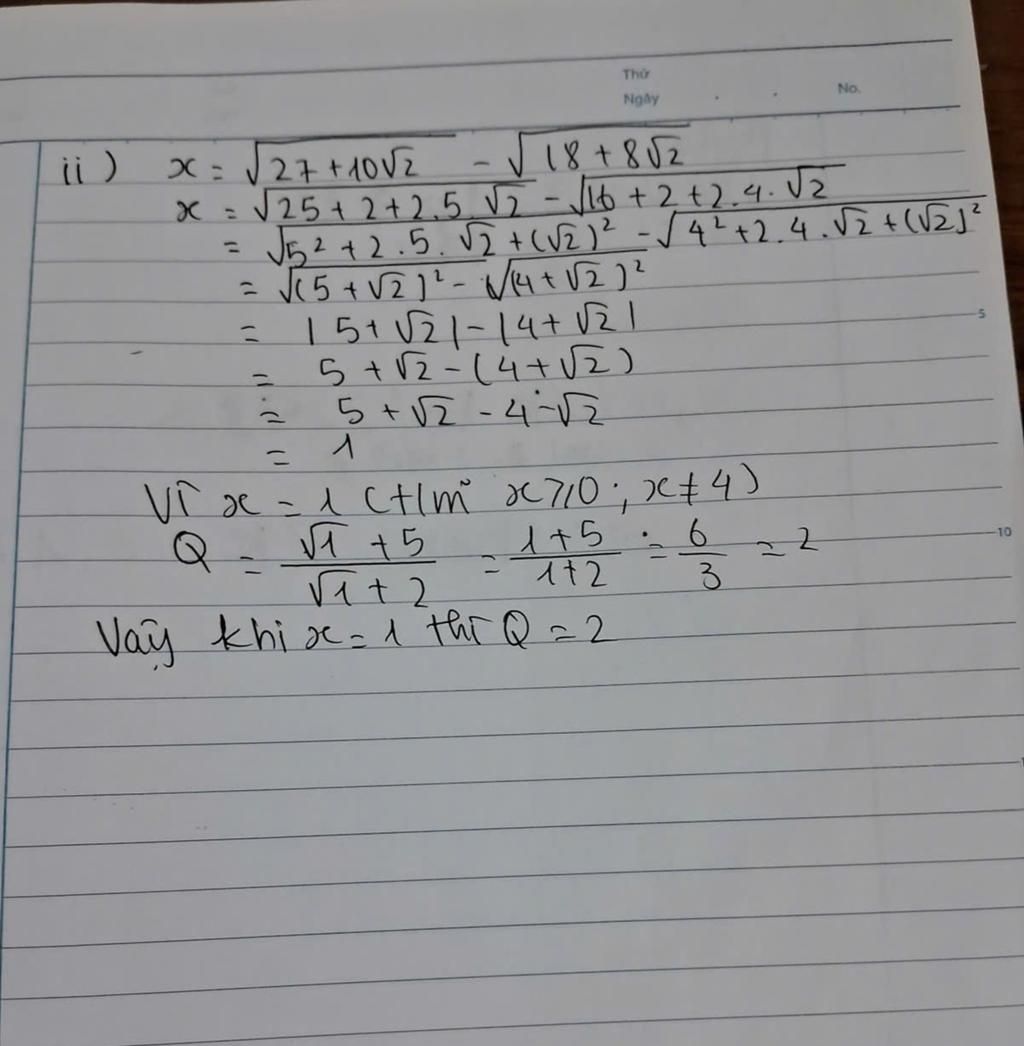 Thứ
Ngày . . No.
ii) x = √27+10√2 - √18+8√2
x = √25+2+2.5.√2 - √16+2+2.4.√2
= √5²+2.5.√2+(√2)² - √4²+2.4.√2+(√2)²
= √(5+√2)² - √(4+√2)²
= |5+√2| - |4+√2|
5
= 5+√2-(4+√2)
= 5+√2-4-√2
= 1
Vì x = 1 (t/m x⩾0; x≠4)
Q = √1+5/√1+2 = 1+5/1+2 = 6/3 = 2
10
Vậy khi x=1 thì Q=2